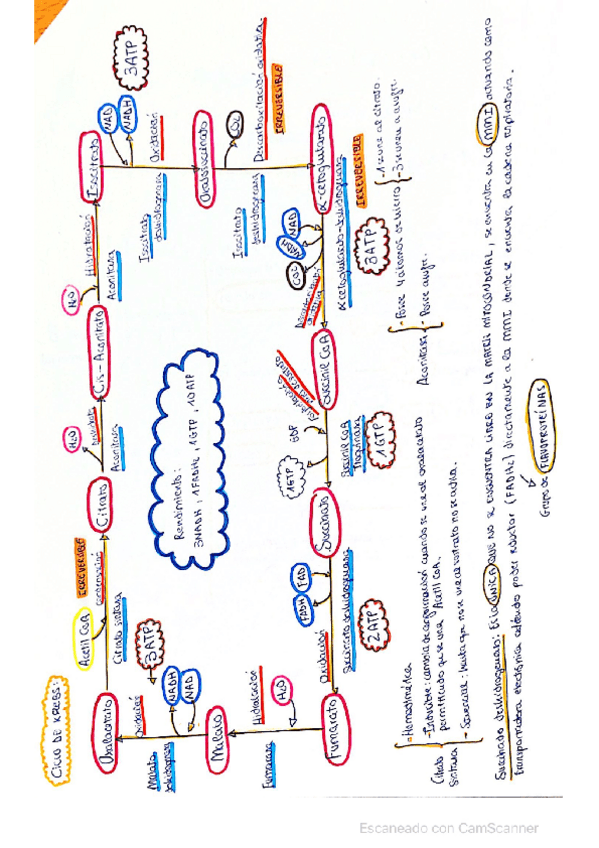 CICLO DE KREBS:
Acetil CoA
IRREVERSIBLE
Oxalacetato
condensación
Citrato sintasa
Citrato
H2O
Aconitasa
Cis-Aconitato
H2O
Hidratación
Aconitasa
Isocitrato
NAD
NADH
3ATP
Oxidación
Isocitrato
deshidrogenasa
Oxalosuccinato
CO2
Descarboxilación oxidativa
IRREVERSIBLE
Isocitrato
deshidrogenasa
α-cetoglutarato
NAD
NADH
CO2
IRREVERSIBLE
α-cetoglutarato-deshidrogenasa
3ATP
Succinil CoA
GDP
1GTP
Succinil CoA
1GTP
Succinato
FAD
FADH
Oxidación
Succinato deshidrogenasa
2ATP
Fumarato
H2O
Hidratación
Fumarasa
Malato
NAD
NADH
Oxidación
Malato
deshidrogenasa
3ATP
Rendimiento:
3NADH, 1FADH2, 1GTP, 10ATP
Citrato
sintasa
- Homodimérica
- Inducible: cambia de organización cuando se une al oxalacetato
permitiendo que se una Acetil CoA.
- Secuencial: Hasta que no se une al sustrato no se activa.
Aconitasa
- Posee 4 átomos de hierro
- 1 se une al citrato.
- 3 se unen a azufre.
- Posee azufre.
Succinato deshidrogenasa: Es la ÚNICA QUE NO SE ENCUENTRA LIBRE EN LA MATRIZ MITOCONDRIAL, se encuentra en la MMI actuando como
transportadora cediendo poder reductor (FADH2) directamente a la MMI donde se encuentra la cadena respiratoria.
Grupo de FLAVOPROTEÍNAS
Escaneado con CamScanner